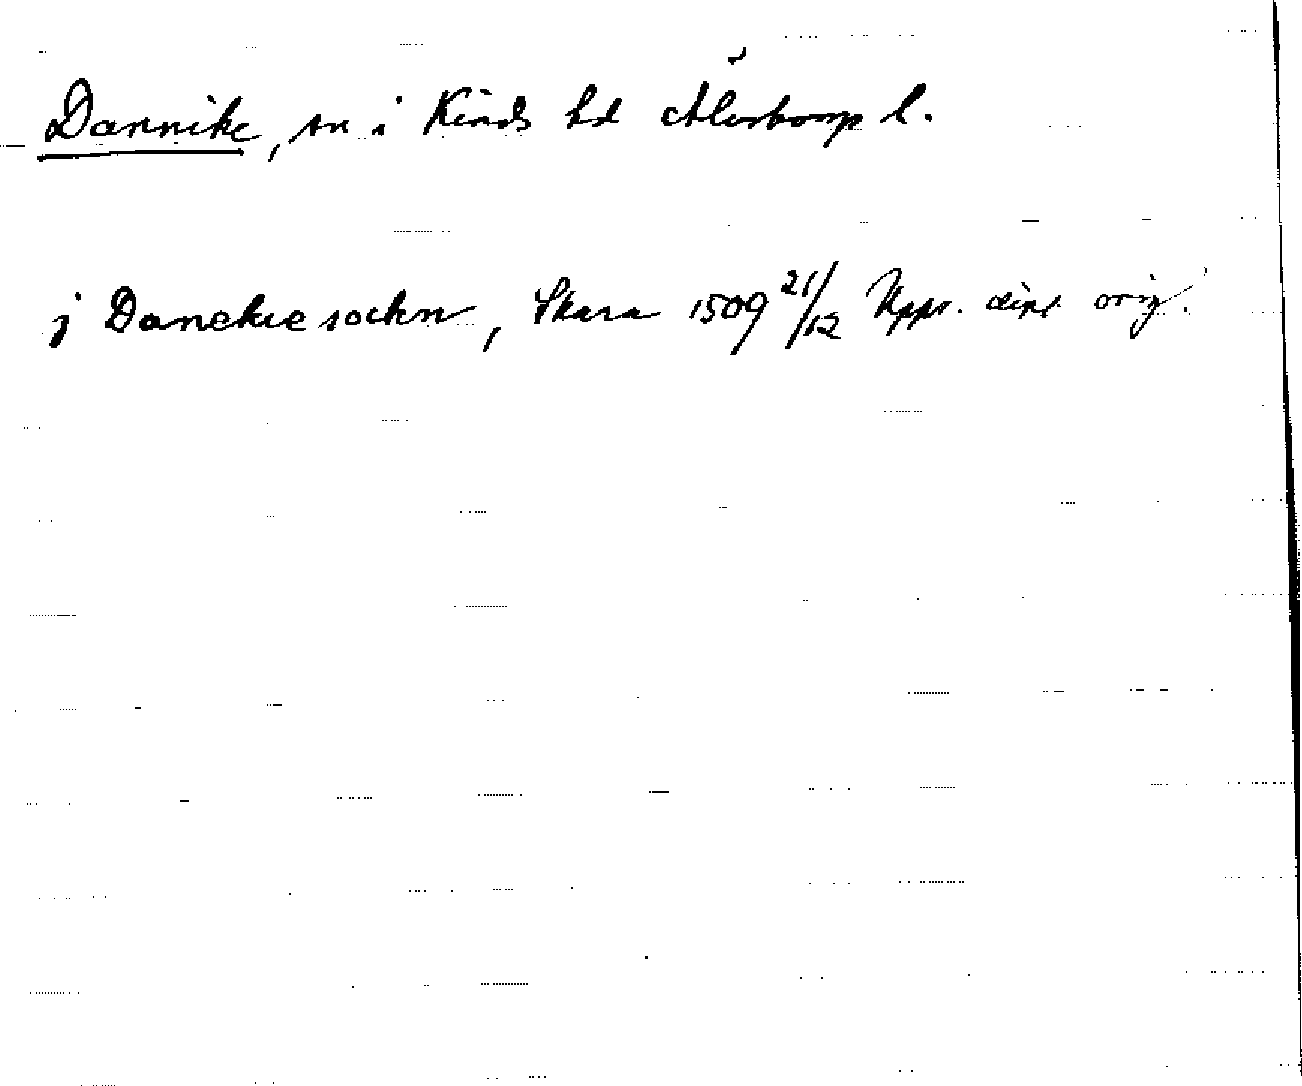 Dannike, sn i Kinds hd Älvsborgs l.
j Danekie sochn, Skara 1509 21/12 Upps. dipl orig.